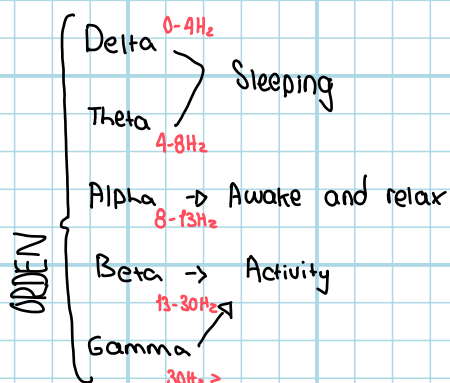 0-4Hz
Delta
Sleeping
Theta
4-8Hz
Alpha -> Awake and relax
8-13Hz
ORDEN
Beta -> Activity
13-30Hz
Gamma
30Hz >